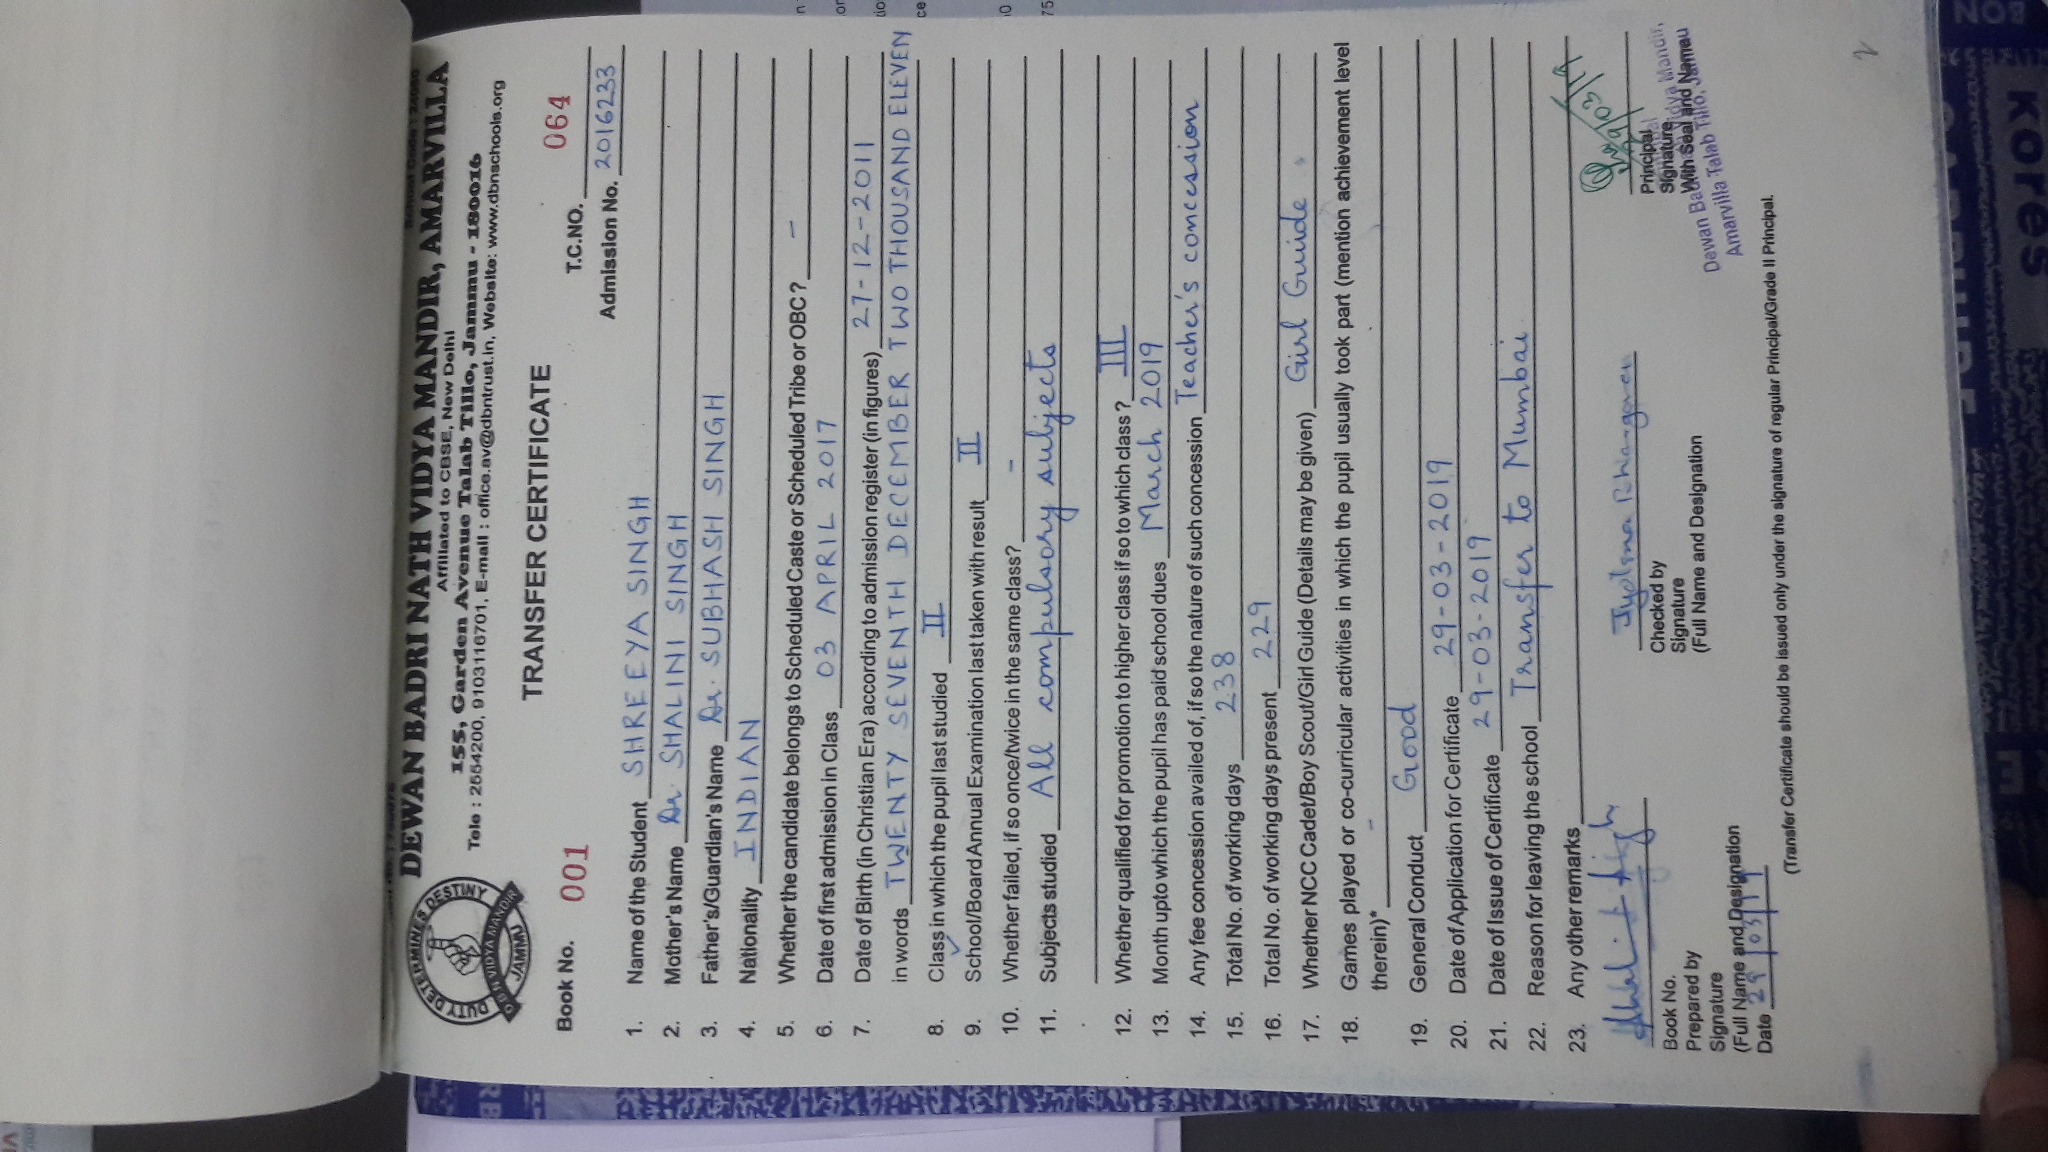 DEWAN BADRI NATH VIDYA MANDIR, AMARVILLA
Affiliated to CBSE, New Delhi
155, Garden Avenue Talab Tillo, Jammu - 180016
Tele : 2554200, 9103116701, E-mail : office.av@dbntrust.in, Website: www.dbnschools.org
DUTY DETERMINES DESTINY
DBN VIDYA MANDIR
JAMMU
TRANSFER CERTIFICATE
Book No. 001 T.C.NO. 064
Admission No. 2016233
1. Name of the Student SHREEYA SINGH
2. Mother's Name Dr. SHALINI SINGH
3. Father's/Guardian's Name Dr. SUBHASH SINGH
4. Nationality INDIAN
5. Whether the candidate belongs to Scheduled Caste or Scheduled Tribe or OBC? -
6. Date of first admission in Class 03 APRIL 2017
7. Date of Birth (in Christian Era) according to admission register (in figures) 27-12-2011
in words TWENTY SEVENTH DECEMBER TWO THOUSAND ELEVEN
8. Class in which the pupil last studied II
9. School/Board Annual Examination last taken with result II
10. Whether failed, if so once/twice in the same class? -
11. Subjects studied All compulsory subjects
12. Whether qualified for promotion to higher class if so to which class? III
13. Month upto which the pupil has paid school dues March 2019
14. Any fee concession availed of, if so the nature of such concession Teacher's concession
15. Total No. of working days 238
16. Total No. of working days present 229
17. Whether NCC Cadet/Boy Scout/Girl Guide (Details may be given) Girl Guide
18. Games played or co-curricular activities in which the pupil usually took part (mention achievement level
therein)* -
19. General Conduct Good
20. Date of Application for Certificate 29-03-2019
21. Date of Issue of Certificate 29-03-2019
22. Reason for leaving the school Transfer to Mumbai
23. Any other remarks
Book No.
Prepared by
Signature
(Full Name and Designation
Date 29/03/19
Checked by
Signature
(Full Name and Designation
29/03/19
Principal
Signature
With Seal and Name
Amarvilla Talab Tillo,
(Transfer Certificate should be issued only under the signature of regular Principal/Grade II Principal.
Kores